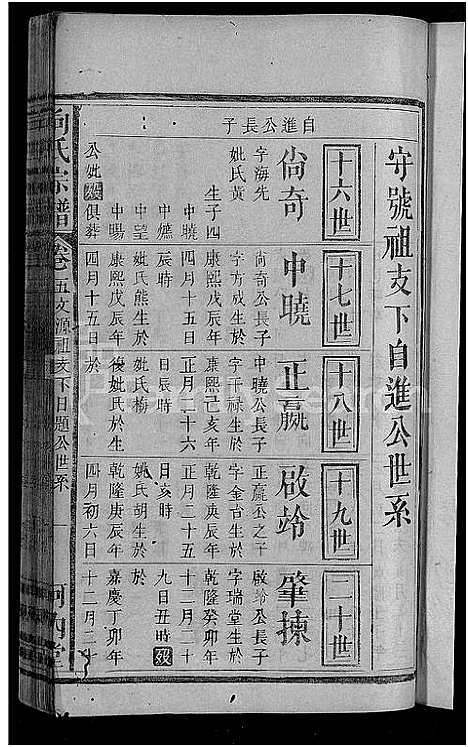 守號祖支下自進公世系
自進公長子
十六世
尙奇
字海先
妣氏黄
生子四
中曉
中爊
中望
中暘
公妣 俱葬
十七世
中曉
尙奇公長子
字方成生於
康熙戊辰年
四月十五日
辰時
妣氏熊生於
康熙戊辰年
四月十五日
十八世
正嬴
中曉公長子
字干祿生於
康熙己亥年
正月二十六
日辰時
妣氏楊
後妣氏於生
於
十九世
啟竛
正嬴公之子
字金古生於
乾隆庚辰年
正月二十五
日亥時
妣氏胡生於
乾隆庚辰年
四月初六日
二十世
肇揀
啟竛公長子
字瑞堂生於
乾隆癸卯年
十二月二十
九日丑時
於
嘉慶丁卯年
十二月二七
向氏宗譜
卷五文源祖支下日題公世系
一
河內堂